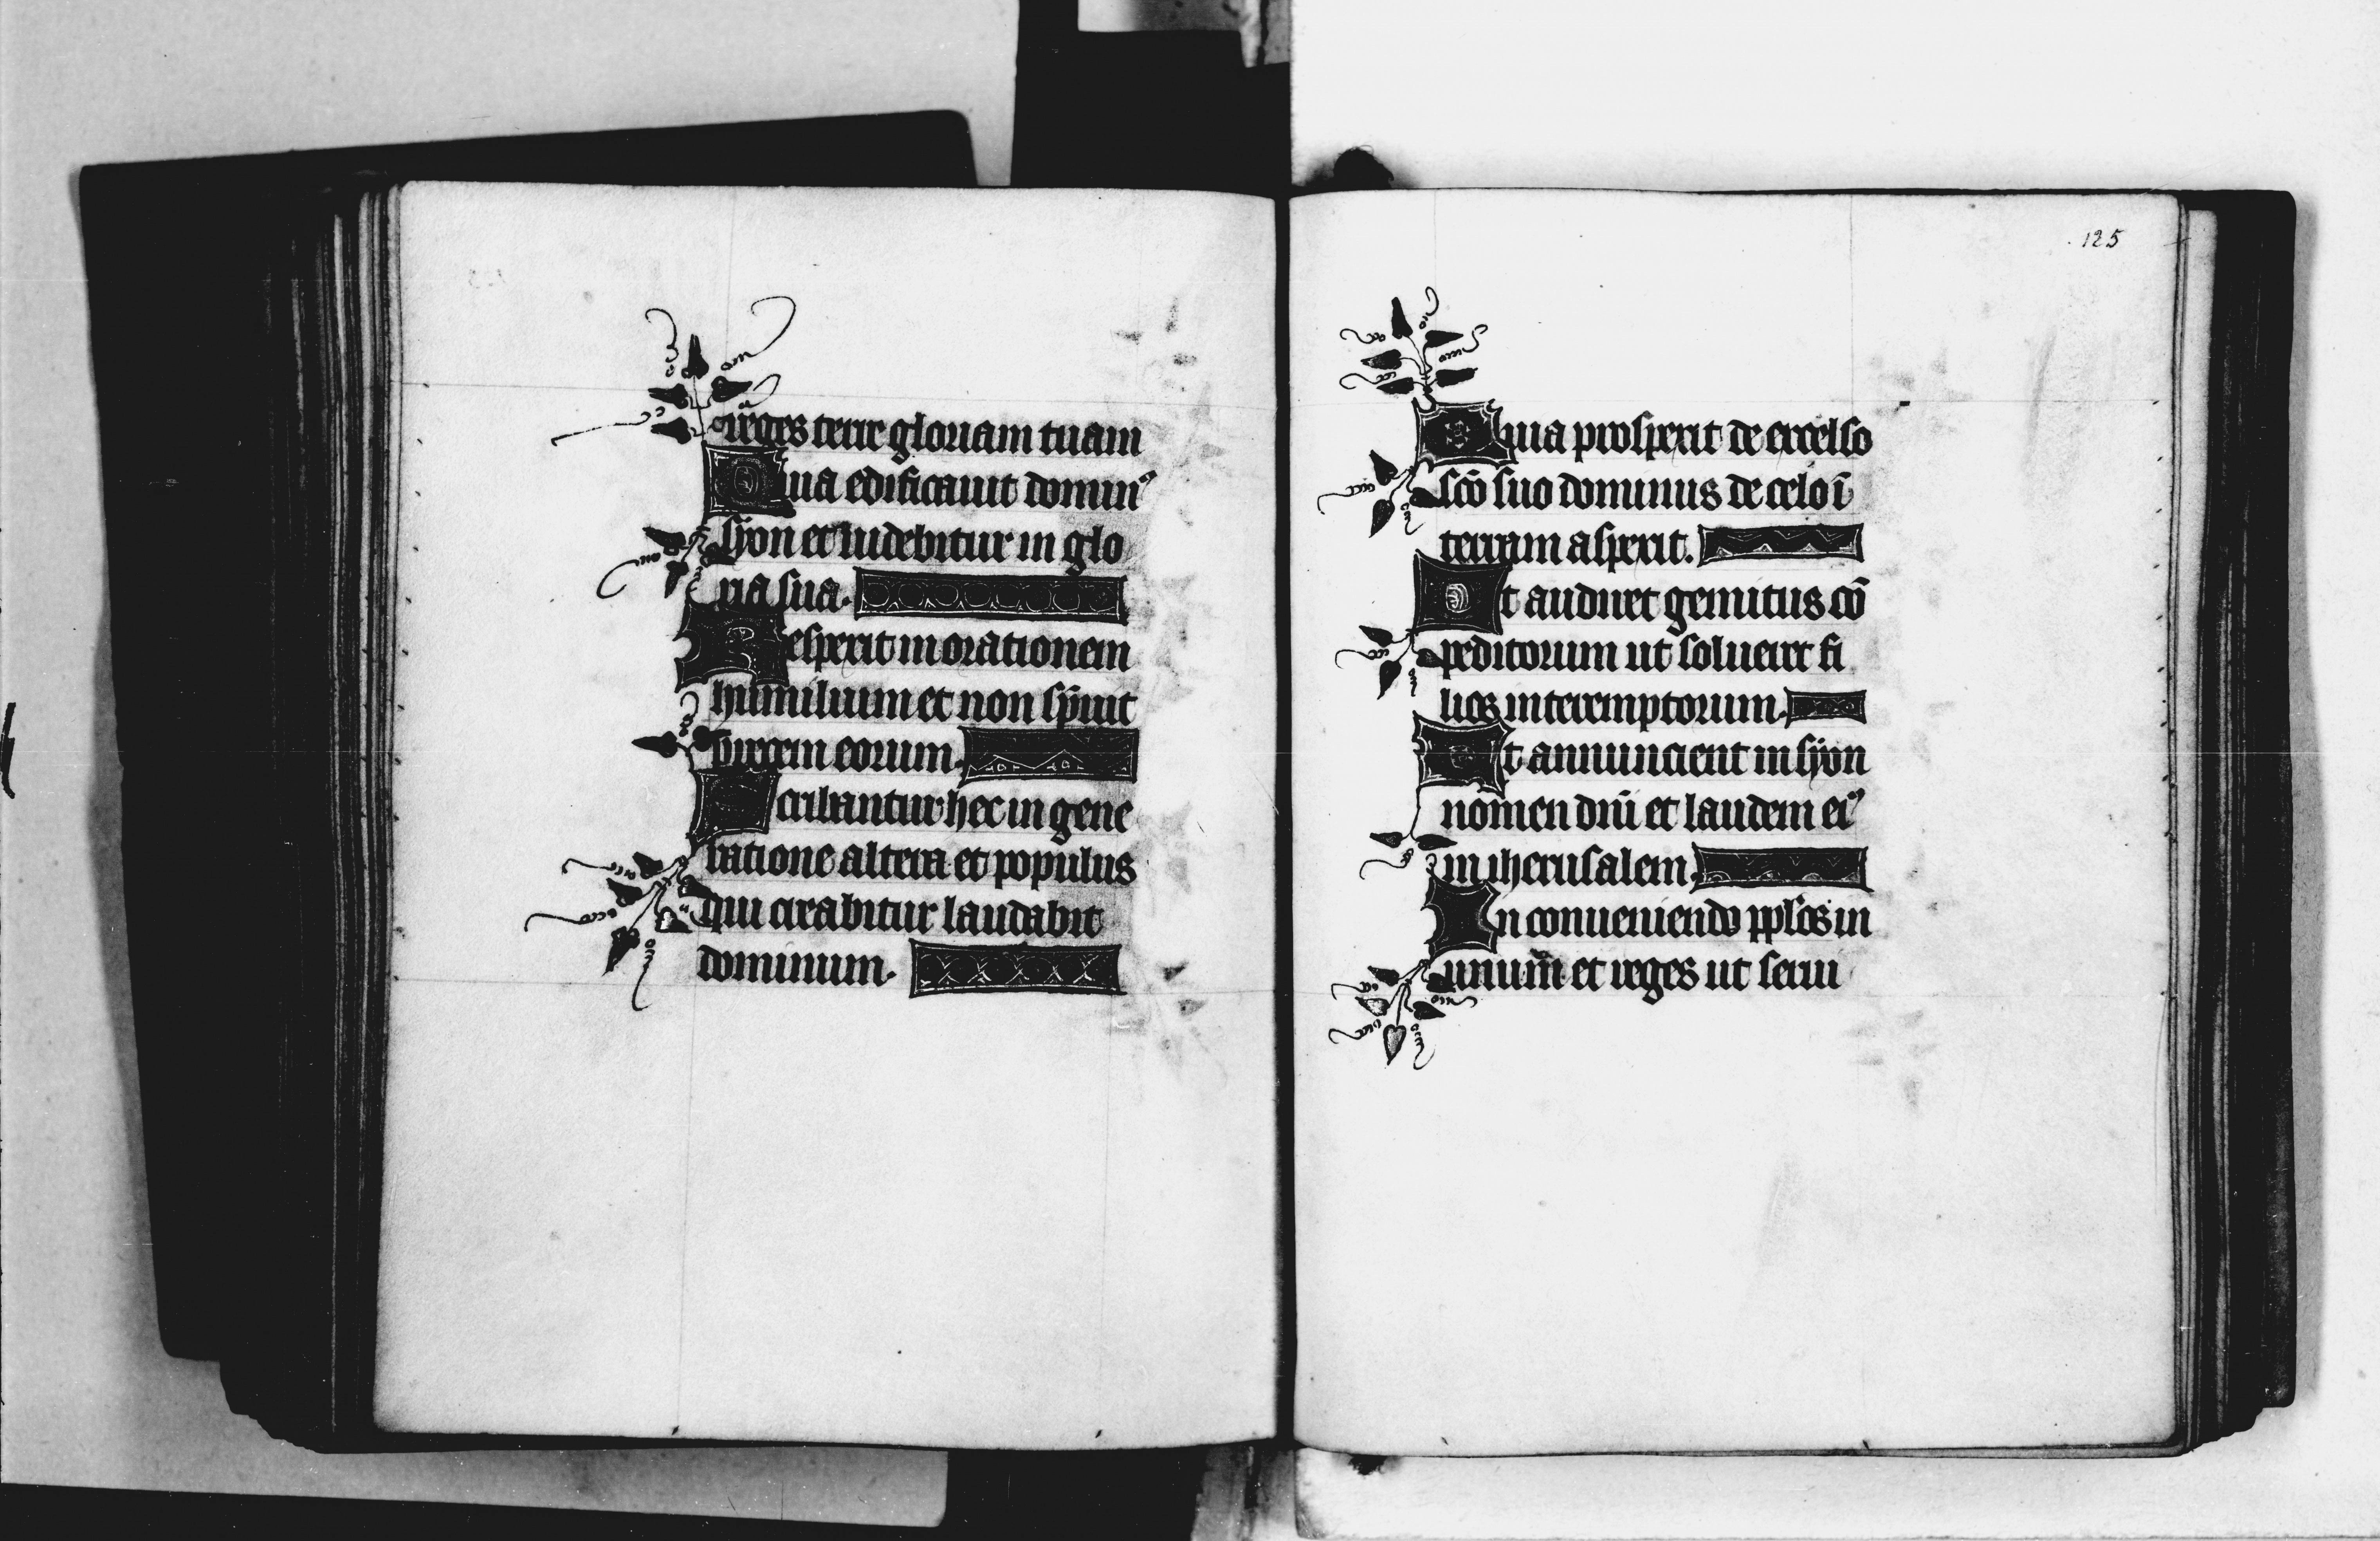 reges terre gloriam tuam
Quia edificauit domin⁹
syon et uidebitur in glo
ria sua.
Respexit in orationem
humilium et non spreuit
precem eorum.
Scribantur hec in gene
ratione altera et populus
qui creabitur laudabit
dominum.
125
Quia prospexit de excelso
sc̄o suo dominus de celo ī
terram aspexit.
Ut audiret gemitus cō
peditorum ut solueret fi
lios interemptorum.
Ut annuncient in syon
nomen dn̄i et laudem ei⁹
in iherusalem.
In conueniendo pplōs in
unum et reges ut serui